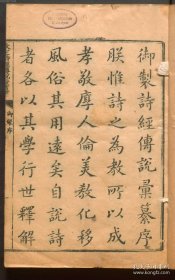 御製詩經傳說彙纂序
朕惟詩之為教所以成
孝敬厚人倫美教化移
風俗其用遠矣自說詩
者各以其學行世釋解